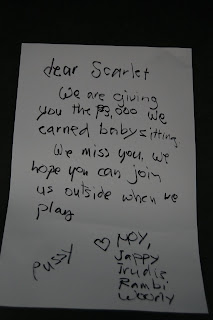 dear Scarlet
We are giving
you the ₱3,000 we
earned babysitting
We miss you, we
hope you can join
us outside when we
play
♡ NOY,
Jappy
Trudis
Rambi
Woorly
pussy